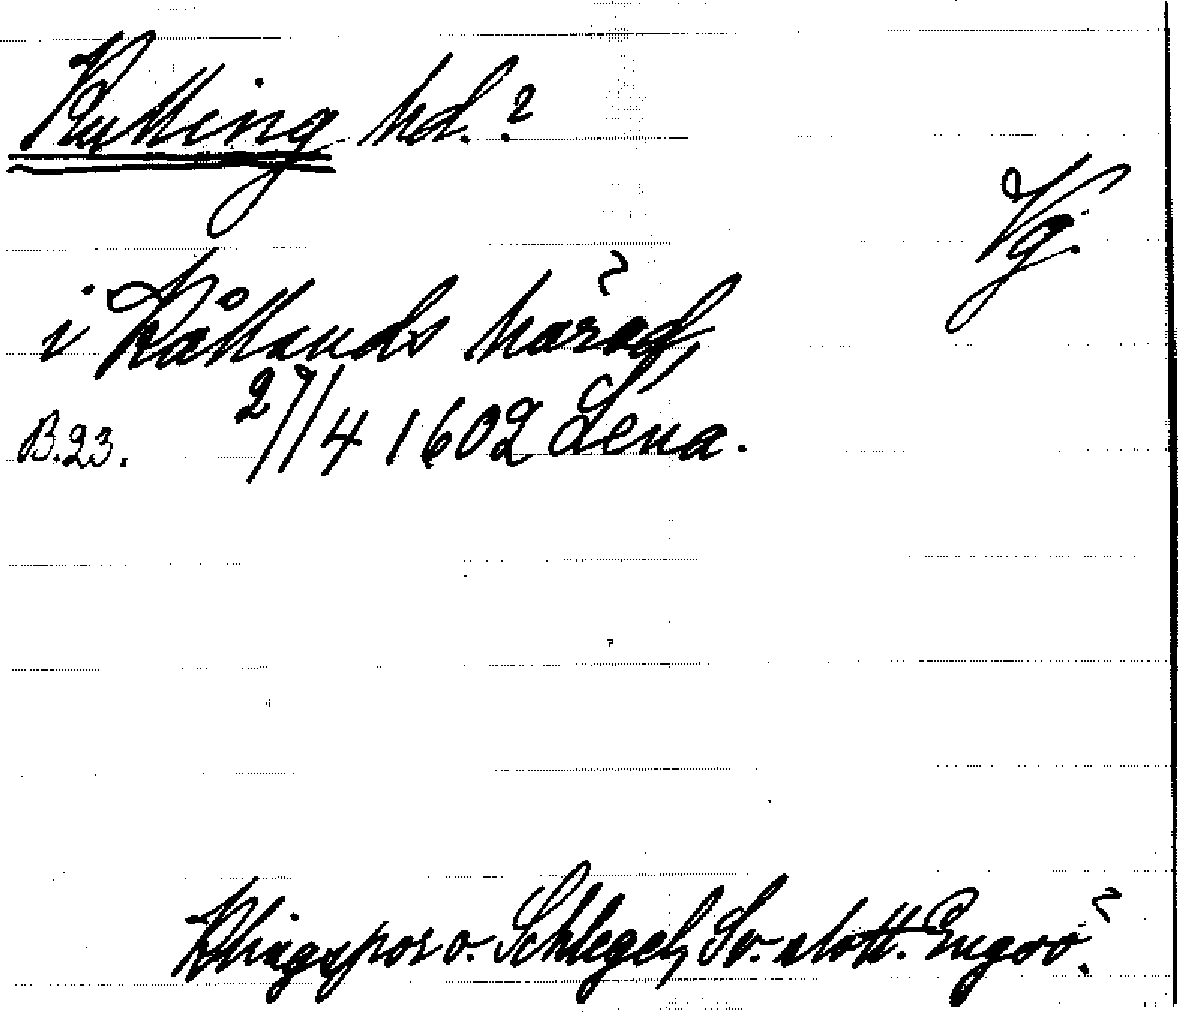 Kulling hd.?
Vg.
i Kållands härad,
B.23. 27/4 1602 Lena.
Klingspor o. Schlegel, Sv. slott. Engsö.